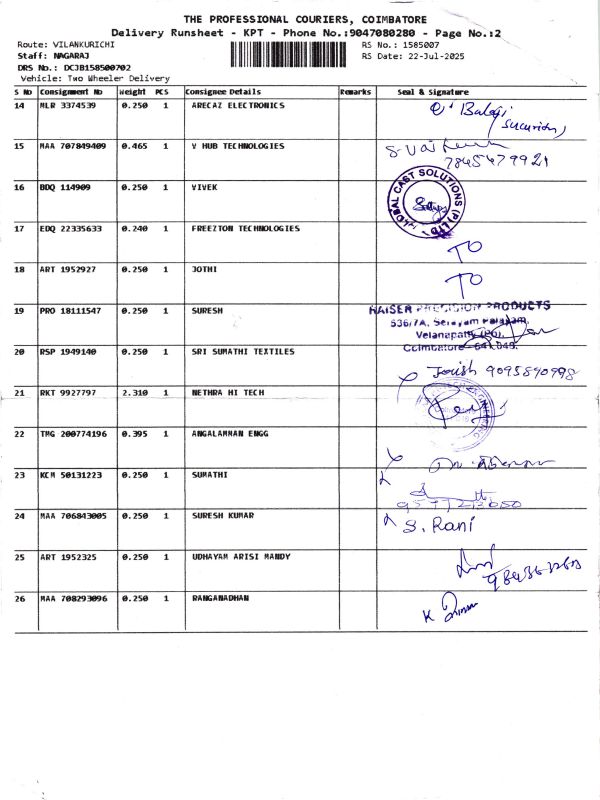 THE PROFESSIONAL COURIERS, COIMBATORE
Delivery Runsheet - KPT - Phone No.:9047080280 - Page No.:2
Route: VILANKURICHI RS No.: 1585007
Staff: NAGARAJ RS Date: 22-Jul-2025
DRS No.: DCJB158500702
Vehicle: Two Wheeler Delivery
S No Consignment No Weight PCS Consignee Details Remarks Seal & Signature
14 MLR 3374539 0.250 1 ARECAZ ELECTRONICS Balaji
15 MAA 707849409 0.465 1 V HUB TECHNOLOGIES
7845479921
16 BDQ 114909 0.250 1 VIVEK GLOBAL CAST SOLUTIONS (P) LTD
17 EDQ 22335633 0.240 1 FREEZTON TECHNOLOGIES
TO
18 ART 1952927 0.250 1 JOTHI TO
19 PRO 18111547 0.250 1 SURESH KAISER PRECISION PRODUCTS
536/7A,
Velanapatti (PO),
Coimbatore - 641 048.
20 RSP 1949140 0.250 1 SRI SUMATHI TEXTILES
9095890998
21 RKT 9927797 2.310 1 NETHRA HI TECH
22 TMG 200774196 0.395 1 ANGALAMMAN ENGG
23 KCM 50131223 0.250 1 SUMATHI
24 MAA 706843005 0.250 1 SURESH KUMAR S. Rani
25 ART 1952325 0.250 1 UDHAYAM ARISI MANDY
26 MAA 708293096 0.250 1 RANGANADHAN K